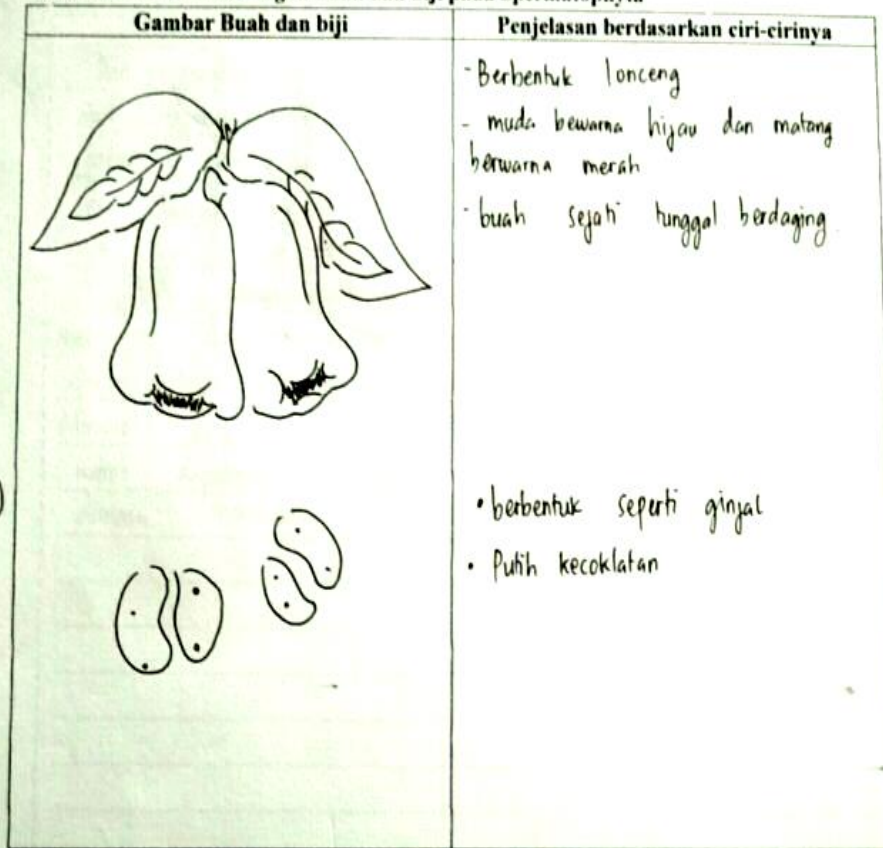 Gambar Buah dan biji
Penjelasan berdasarkan ciri-cirinya
- Berbentuk lonceng
- muda bewarna hijau dan matang
berwarna merah
- buah sejati tunggal berdaging
• berbentuk seperti ginjal
• Putih kecoklatan